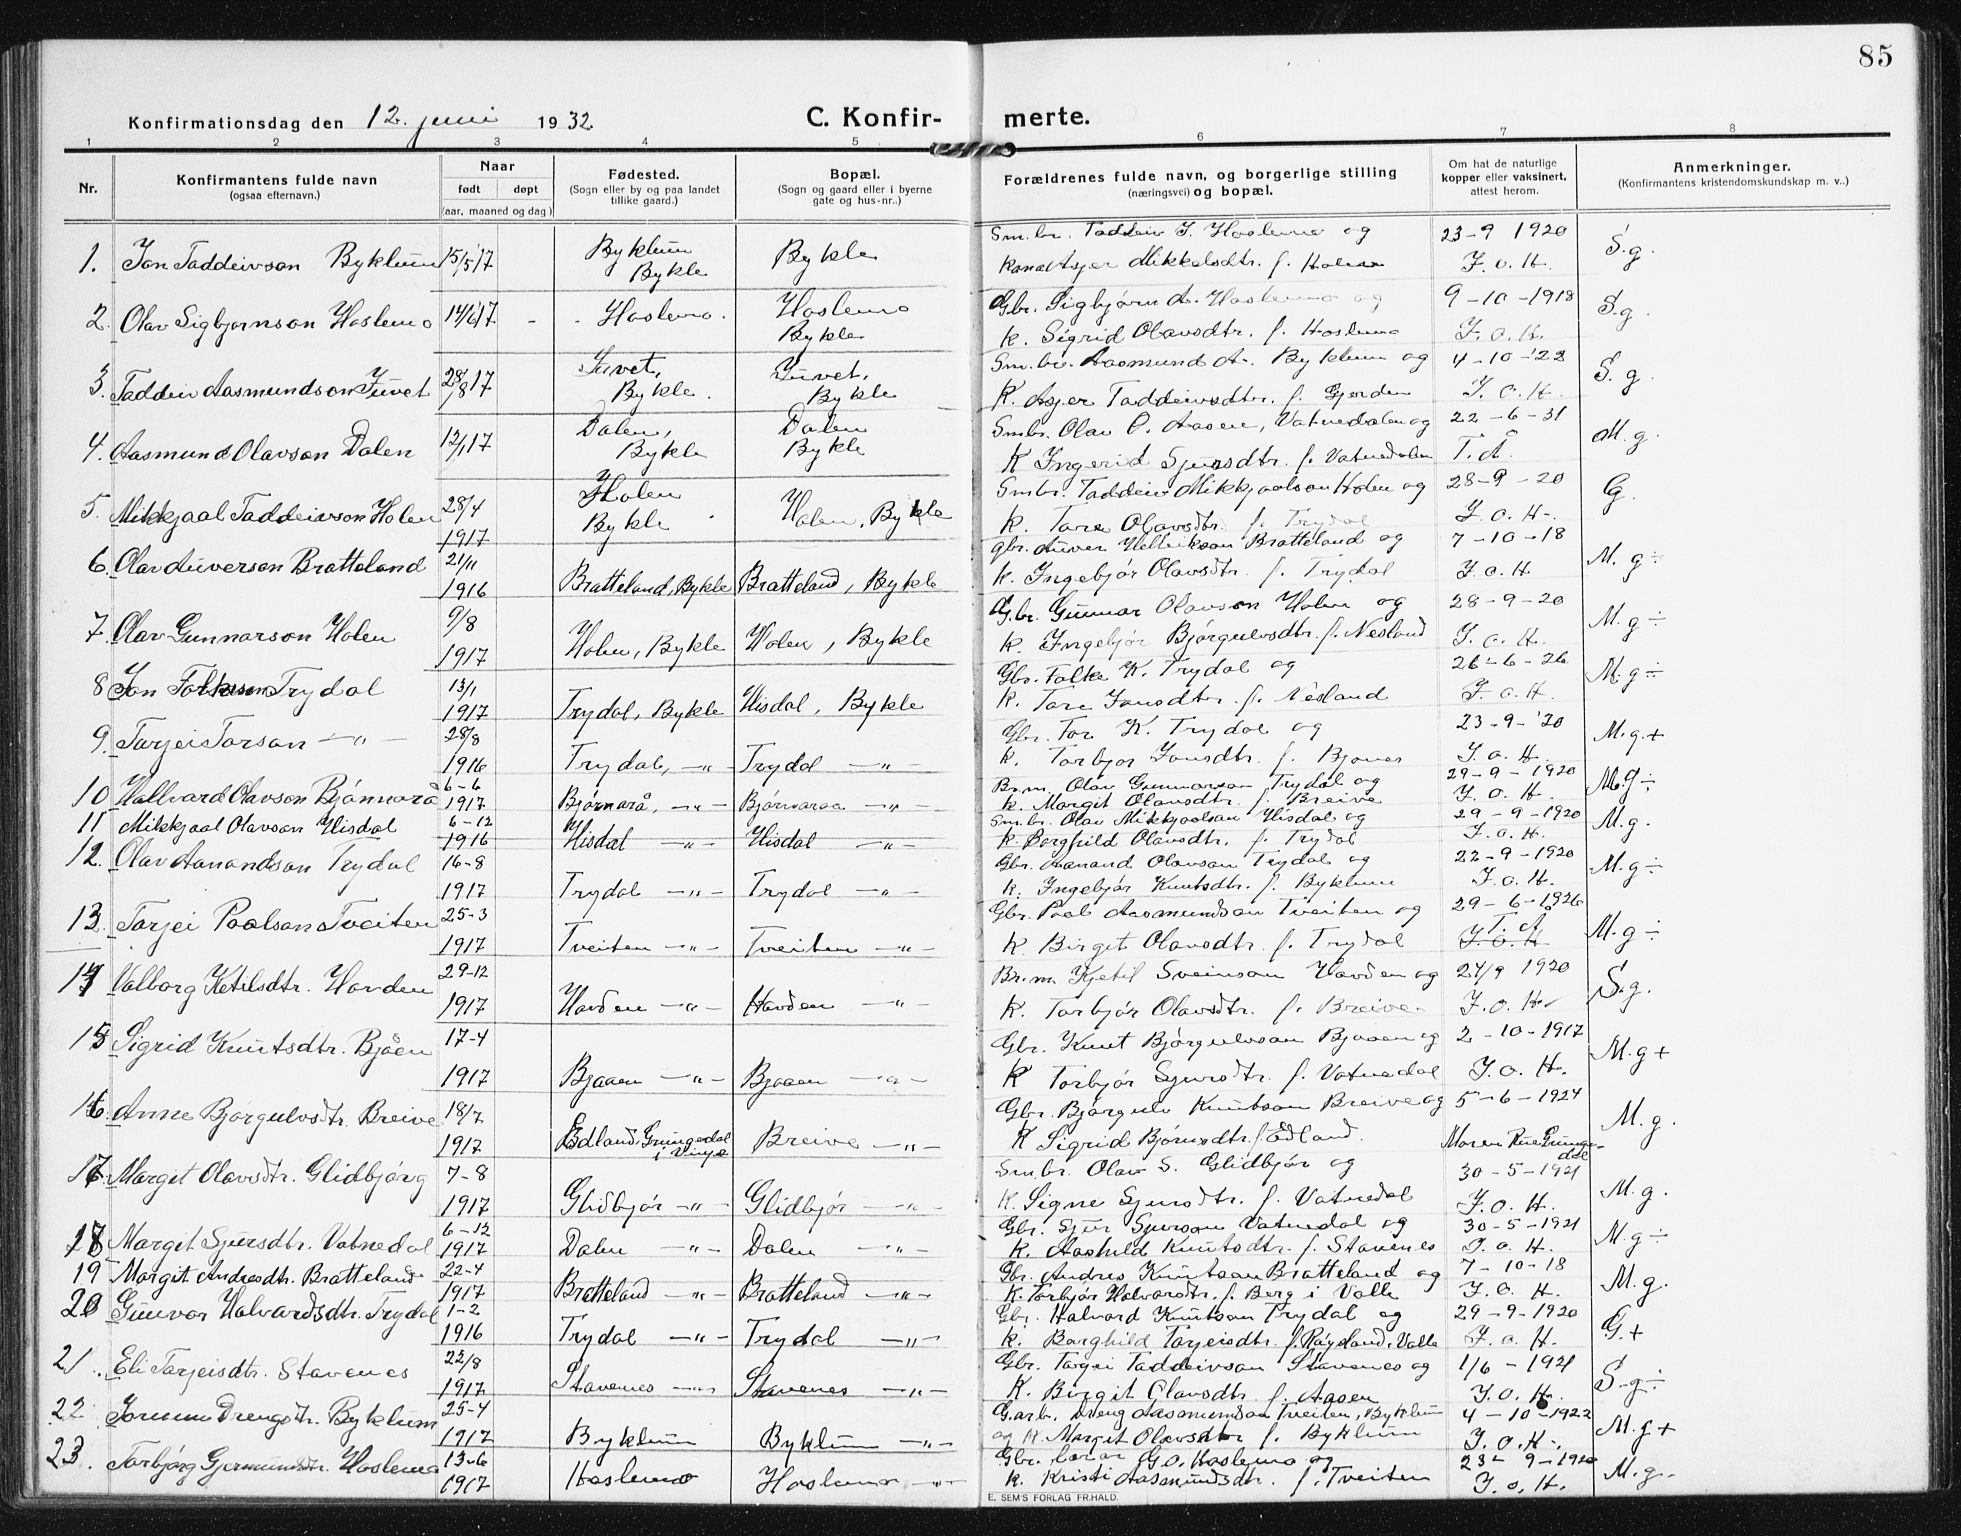 85
Konfirmationsdag den 12. juni 1932 C. Konfir- merte.
1 2 3 4 5 6 7 8
Nr. Konfirmantens fulde navn (ogsaa efternavn.) Naar født døpt (aar, maaned og dag) Fødested. (Sogn eller by og paa landet tillike gaard.) Bopæl. (Sogn og gaard eller i byerne gate og hus-nr..) Forældrenes fulde navn, og borgerlige stilling (næringsvei) og bopæl. Om hat de naturlige kopper eller vaksinert, attest herom. Anmerkninger. (Konfirmantens kristendomskundskap m. v..)
1. Jon Taddeivson Byklum 15/5 17 Byklum Bykle Bykle Sm.br. Taddeiv J. Hoslemo og 23-9 1920 S.g.
kona Asjer Mikkelsdtr. f. Holen J. o. H.
2. Olav Sigbjørnson Hoslemo 14/6 17 - - Hoslemo. Hoslemo Bykle Gbr. Sigbjørn A. Hoslemo og 9-10-1918 S.g.
k. Sigrid Olavsdtr. f. Hoslemo J. o. H.
3. Taddeiv Aasmundson Juvet 28/8 17 Juvet, Bykle. Juvet, Bykle Sm.br. Aasmund A. Byklum og 4-10-'22 S.g.
K. Asjer Taddeivsdtr. f. Gjerden J. o. H.
4. Aasmund Olavson Dalen 12/1 17 Dalen, Bykle Dalen Bykle Smbr. Olav O. Aasen, Vatnedalen og 22-6-31 M.g.
K Ingerid Sjursdtr. f. Vatnedalen T. Å.
5. Mikkjaal Taddeivson Holen 28/4 1917 Holen Bykle Holen, Bykle Smbr. Taddeiv Mikkjaalson Holen og 28-9-20 G.
k. Tare Olavsdtr. f. Trydal J. o. H.
6. Olav Auverson Bratteland 21/11 1916 Bratteland, Bykle Bratteland, Bykle gbr. Auver Hellikson Bratteland og 7-10-18 M.g ÷
k. Ingebjør Olavsdtr. f. Trydal J. o. H
7. Olav Gunnarson Holen 9/8 1917 Holen, Bykle Holen, Bykle Gbr. Gunnar Olavson Holen og 28-9-20 M.g ÷
k. Ingebjør Bjørgulvsdtr. f. Nesland J. o. H.
8 Jon Folkeson Trydal 13/1 1917 Trydal, Bykle Hisdal, Bykle Gbr. Folke K. Trydal og 26-6-26 M.g ÷
k. Tare Jonsdtr. f. Nesland J. o. H.
9. Tarjei Torson —"— 28/8 1916 Trydal, —"— Trydal —"— Gbr. Tor K. Trydal og 23-9-'20 M.g.+
k. Torbjør Jonsdtr. f. Bjones J. o. H.
10 Hallvard Olavson Bjørnarå 6-6 1917 Bjørnarå, —"— Bjørnaraa —"— Br.m. Olav Gunnarson Trydal og 29-9-1920 M.g ÷
k. Margit Olavsdtr. f. Breive J. o. H.
11 Mikkjaal Olavson Hisdal 6-12 1916 Hisdal —"— Hisdal —"— Sm.br. Olav Mikkjaalson Hisdal og 29-9-1920 M.g.
k. Borghild Olavsdtr. f. Trydal J. o. H.
12. Olav Aanandson Trydal 16-8 1917 Trydal —"— Trydal —"— Gbr. Aanand Olavson Trydal og 22-9-1920 M.g ÷
k. Ingebjør Knutsdtr. f. Byklum J. o. H.
13. Tarjei Paalson Tveiten 25-3 1917 Tveiten —"— Tveiten —"— Gbr. Paal Aasmundson Tveiten og 29-6-1926 M.g ÷
k Birgit Olavsdtr. f. Trydal T. Å J. o. H
14 Valborg Ketilsdtr. Hovden 29-12 1917 Hovden —"— Hovden —"— Br.m. Kjetil Sveinson Hovden og 27/9 1920 S.g.
k. Torbjør Olavsdtr. f. Breive. J. o. H.
15 Sigrid Knutsdtr. Bjåen 17-4 1917 Bjaaen —"— Bjaaen —"— Gbr. Knut Bjørgulvson Bjaaen og 2-10-1917 M.g +
K Torbjør Sjursdtr. f. Vatnedal J. o. H.
16. Anne Bjørgulvsdtr. Breive 18/7 1917 Edland, Grungedal i Vinje Breive —"— Gbr. Bjørgulv Knutson Breive og 5-6-1924 M.g.
K Sigrid Bjørnsdtr. f. Edland. Maren Rue Grungedal
17. Margit Olavsdtr. Glidbjørg 7-8 1917 Glidbjør —"— Glidbjør —"— Smbr. Olav S. Glidbjør og 30-5-1921 M.g.
k. Signe Sjursdtr. f. Vatnedal J. o. H.
18 Margit Sjursdtr. Vatnedal 6-12 1917 Dalen —"— Dalen —"— Gbr. Sjur Sjurson Vatnedal og 30-5-1921 M.g ÷
k. Aashild Knutsdtr. f. Stavenes J. o. H.
19 Margit Andresdtr. Bratteland 22-4 1917 Bratteland —"— Bratteland —"— Gbr. Andres Knutson Bratteland og 7-10-18 M.g.
k. Torbjør Halvardsdtr. f. Berg i Valle J. o. H.
20 Gunvor Halvardsdtr. Trydal 1-2 1916 Trydal —"— Trydal —"— Gbr. Halvard Knutson Trydal og 29-9-1920 G.+
k. Borghild Tarjeisdtr. f. Røysland, Valle J. o. H.
21. Eli Tarjeisdtr. Stavenes 22/8 1917 Stavenes —"— Stavenes —"— Gbr. Tarjei Taddeivson Stavenes og 1/6-1921 S.g ÷
K. Birgit Olavsdtr. f. Aasen J. o. H.
22. Jorunn Drengsdtr. Byklum 25-4 1917 Byklum Byklum —"— G.arb. Dreng Aasmundson Tveiten, Byklum 4-10-1922 M.g +
og k. Margit Olavsdtr f. Byklum J. o. H.
23. Torbjørg Gjermundsdtr. Hoslemo 13-6 1917 Hoslemo Hoslemo —"— Gbr. G. O. Hoslemo og 23-9-1920 M.g.
k. Kristi Aasmundsdtr. f. Tveiten J. o. H.
E. SEM'S FORLAG FR.HALD.